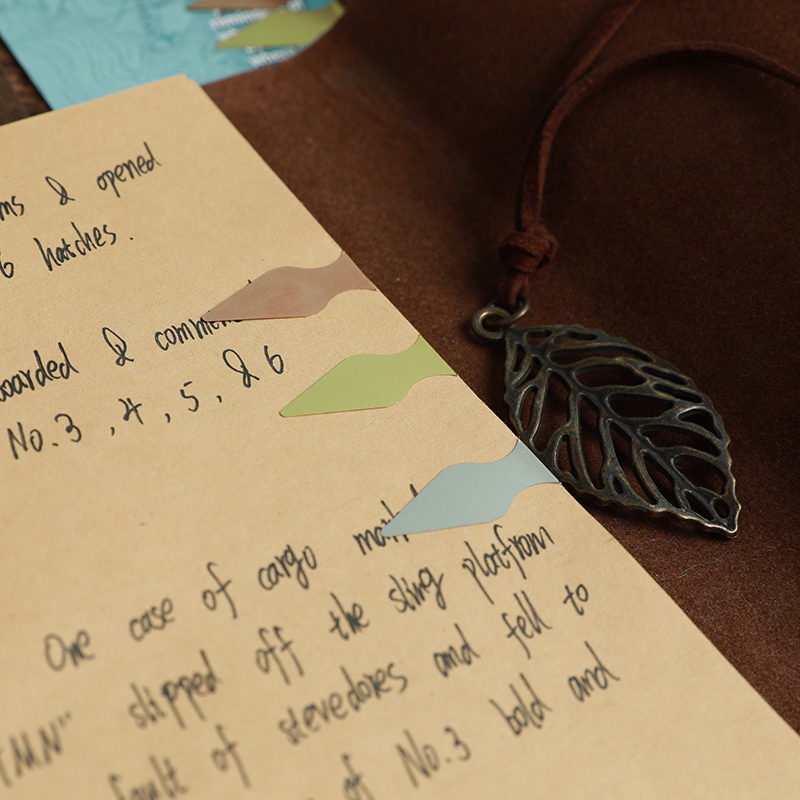 & opened
6 hatches.
& comm
No.3 , 4 , 5 , & 6
One case of cargo
slipped off the sling platfrom
fault of stevedores and fell to
of No.3 bold and